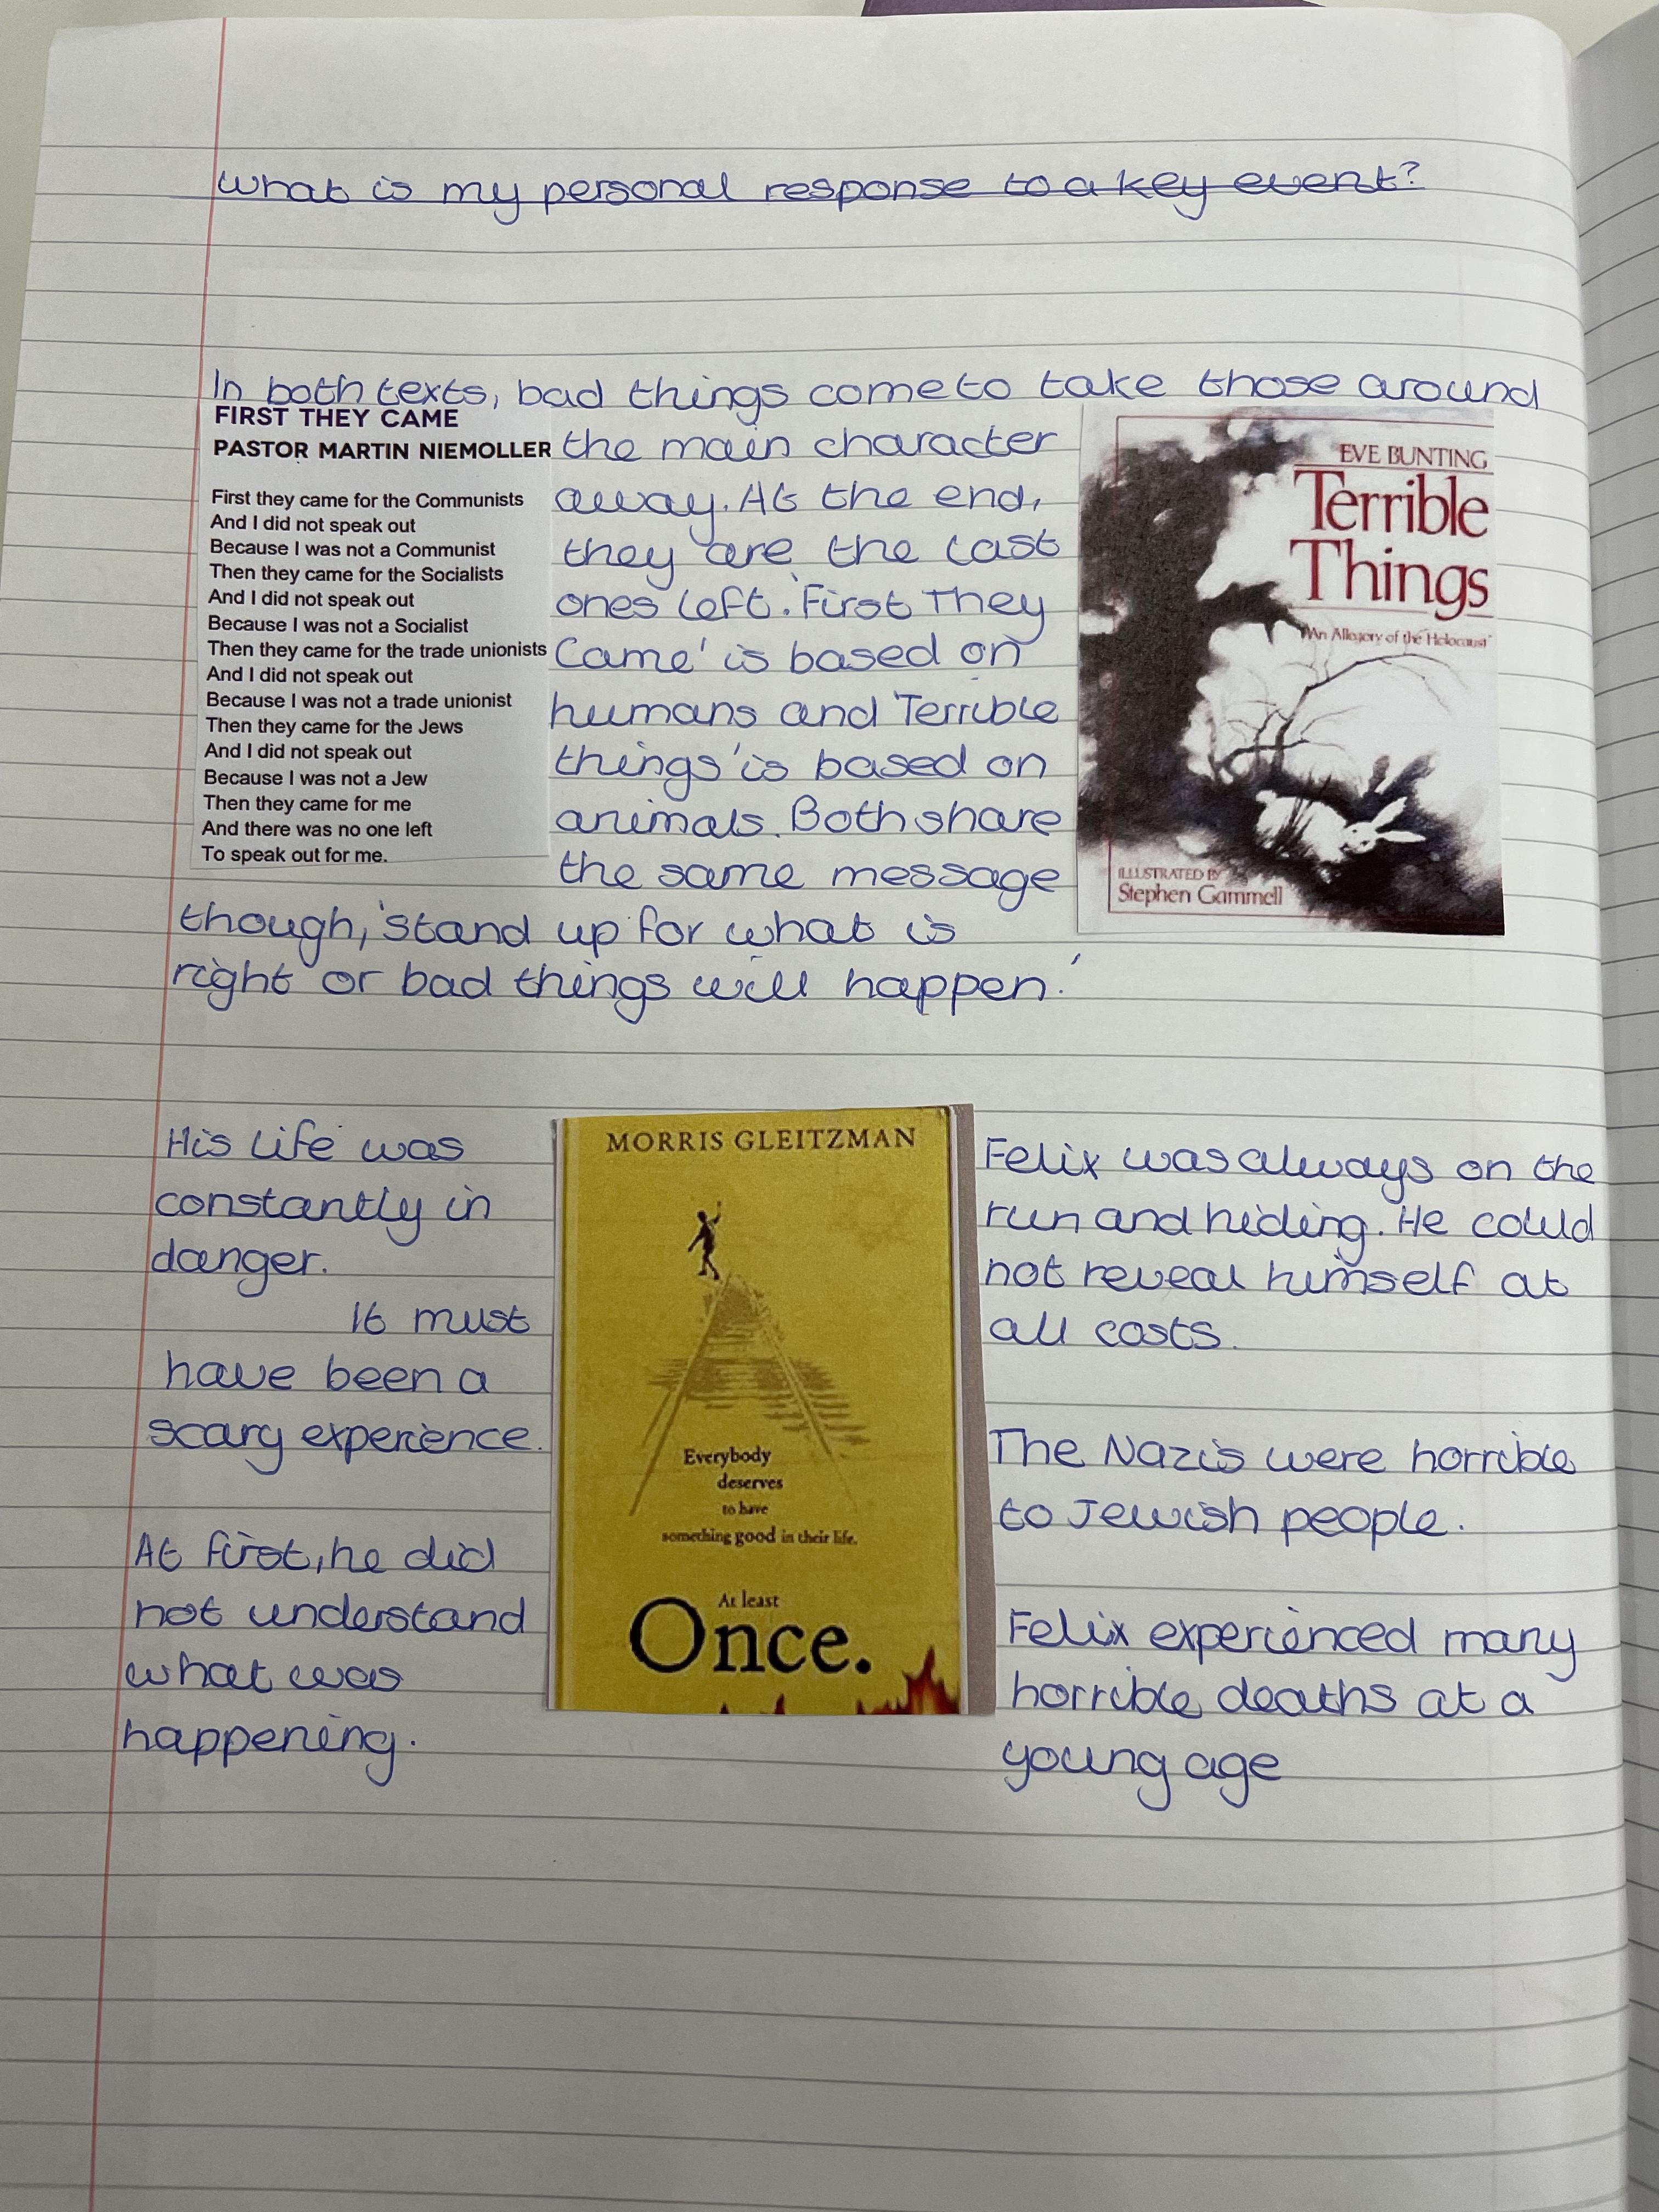 What is my personal response to a key event?
In both texts, bad things come to take those around
FIRST THEY CAME
PASTOR MARTIN NIEMOLLER
First they came for the Communists
And I did not speak out
Because I was not a Communist
Then they came for the Socialists
And I did not speak out
Because I was not a Socialist
Then they came for the trade unionists
And I did not speak out
Because I was not a trade unionist
Then they came for the Jews
And I did not speak out
Because I was not a Jew
Then they came for me
And there was no one left
To speak out for me.
the main character
away. At the end,
they are the last
ones left. 'First They
Came' is based on
humans and 'Terrible
things' is based on
animals. Both share
the same message
though, 'stand up for what is
right or bad things will happen.'
EVE BUNTING
Terrible
Things
"An Allegory of the Holocaust"
ILLUSTRATED BY
Stephen Gammell
His life was
constantly in
danger.
It must
have been a
scary experience.
At first, he did
not understand
what was
happening.
MORRIS GLEITZMAN
Everybody
deserves
to have
something good in their life.
At least
Once.
Felix was always on the
run and hiding. He could
not reveal himself at
all costs.
The Nazis were horrible
to Jewish people.
Felix experienced many
horrible deaths at a
young age